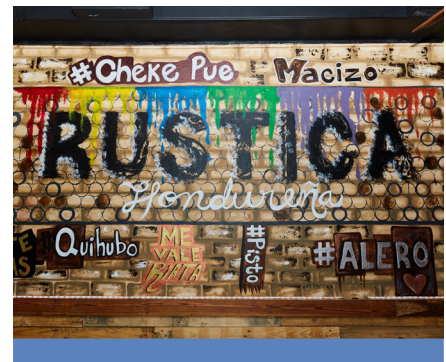 #Cheke Pue
Macizo
RUSTICA
Hondureña
Quihubo
ME
VALE
RIATA
#Pisto
#ALERO